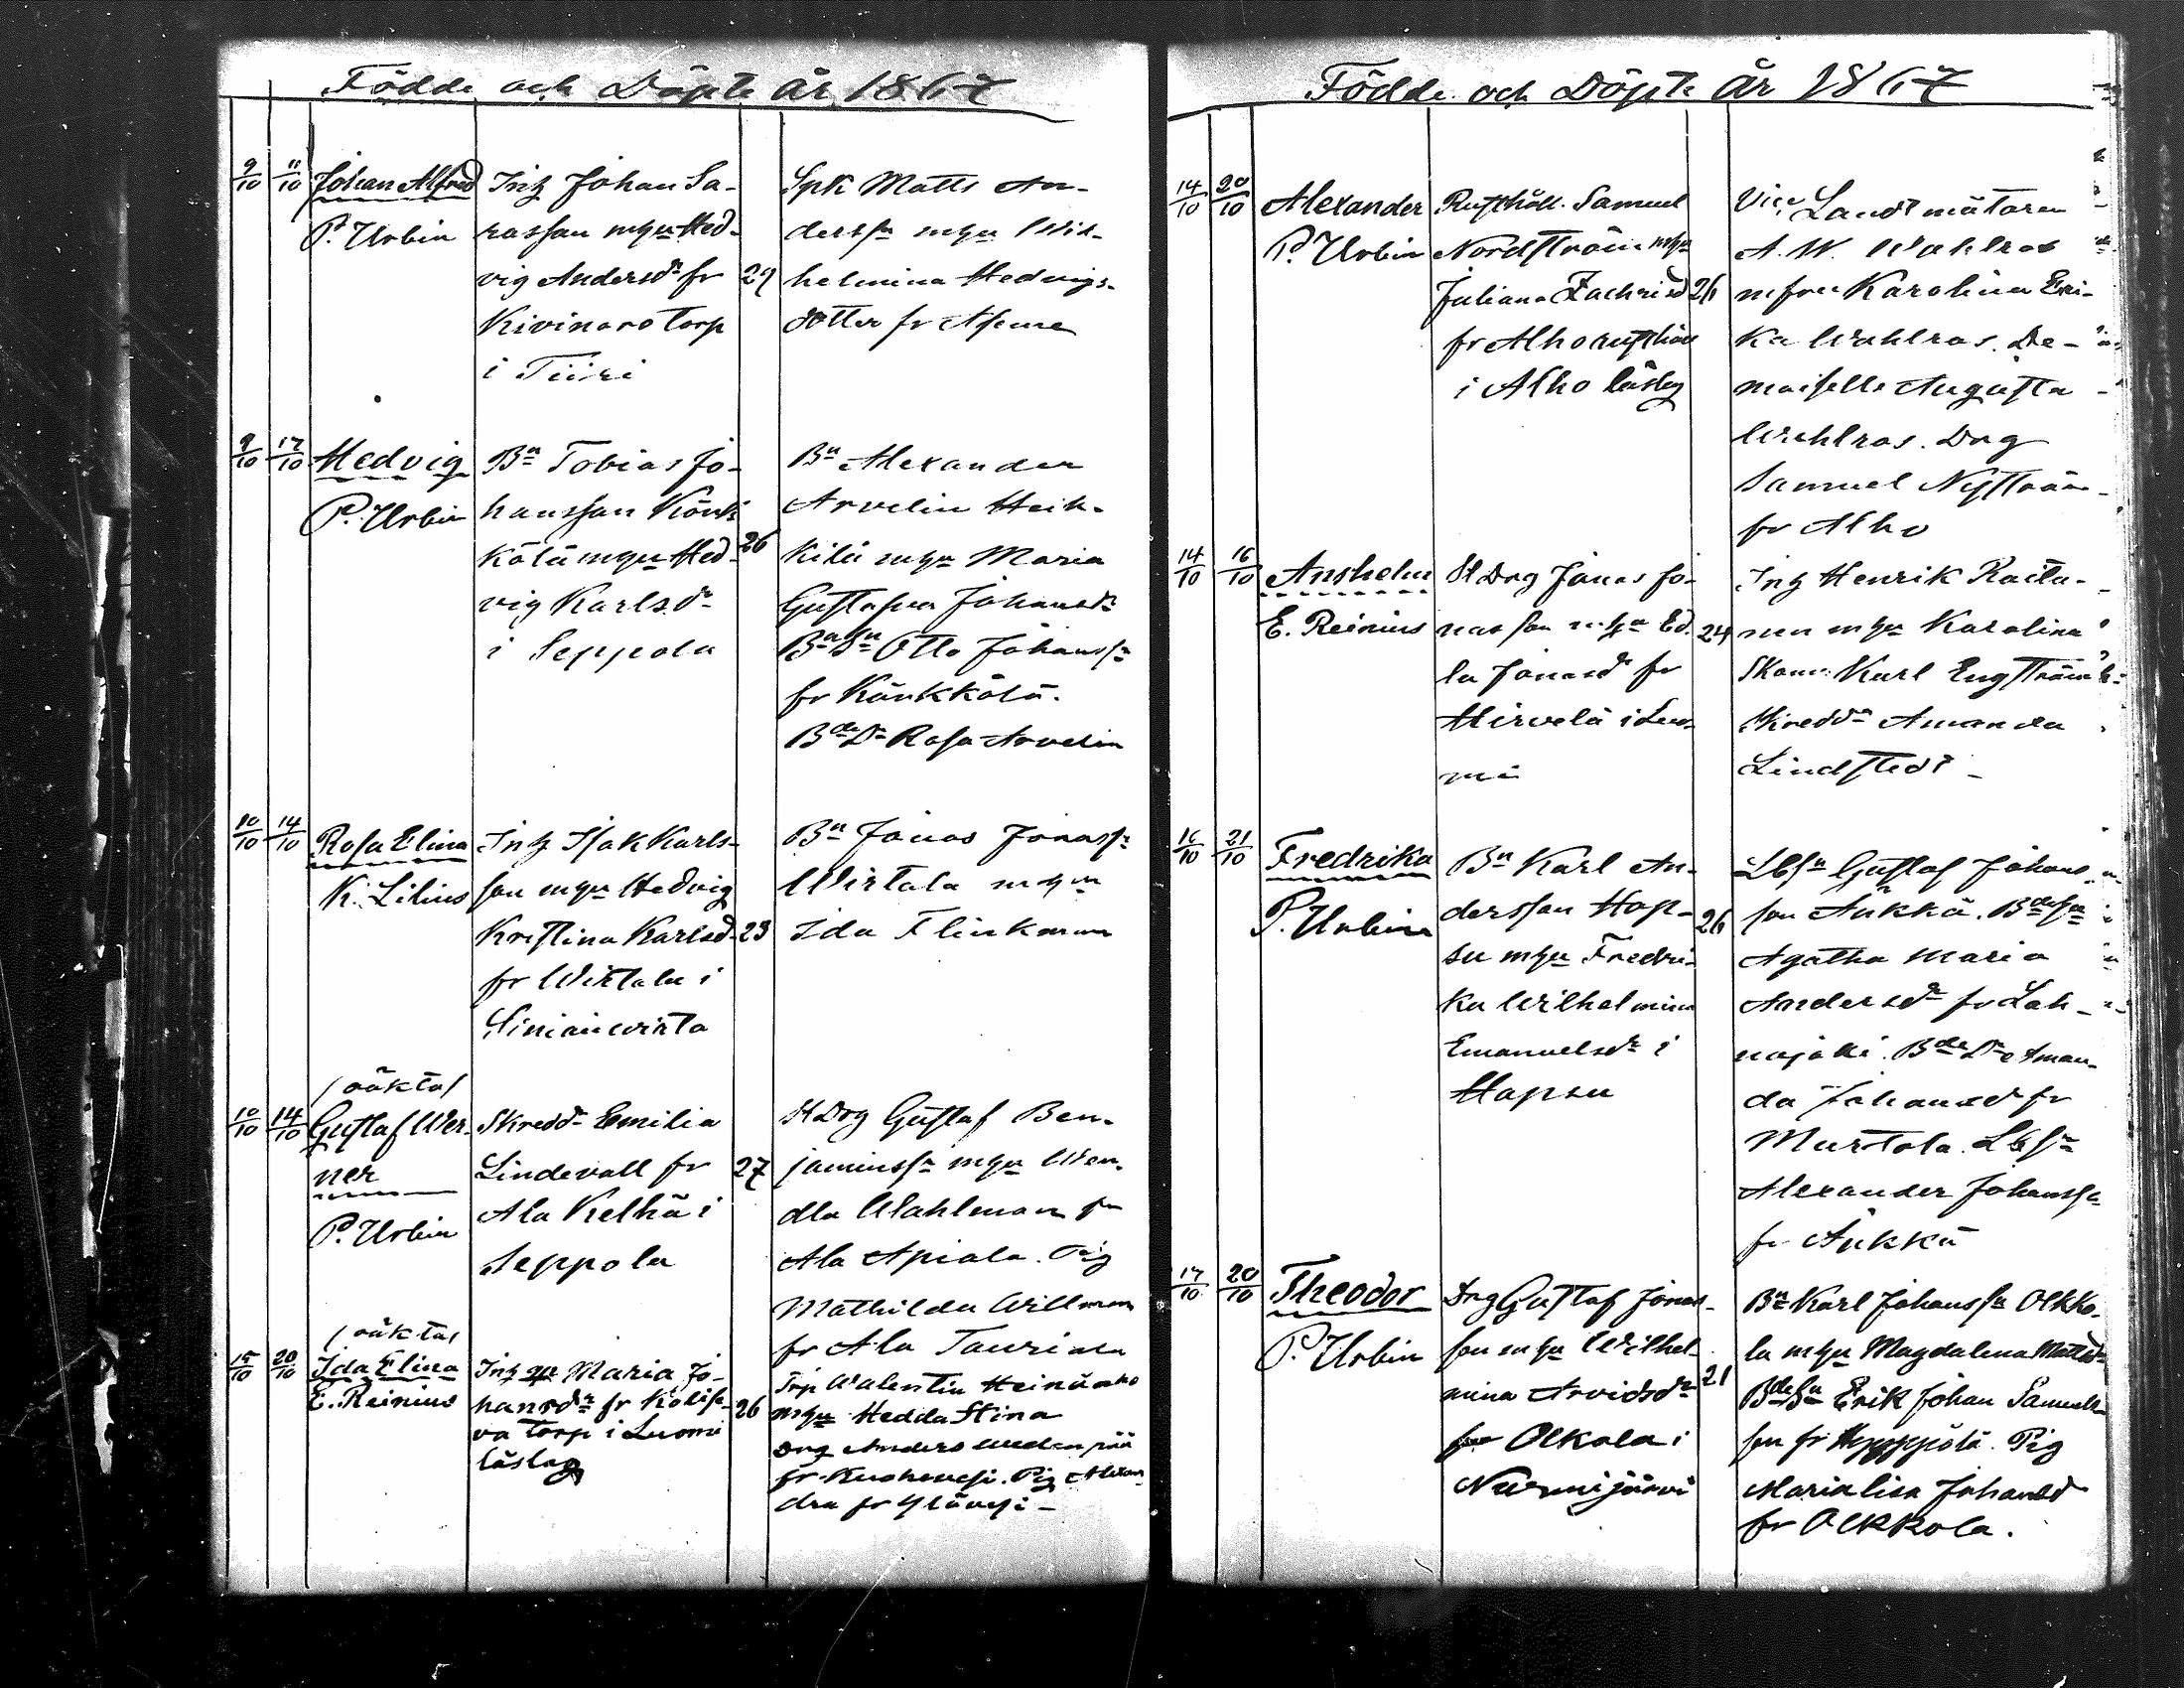 Födde och Döpte år 1867
9/10 11/10 Johan Alfred
P. Urbin
Inh Johan Sa-
rasson mhu Hed-
vig Andersdr fr
Kivinoro torp
i Tiiri
29
Spk Matts An-
derssn mhu Wil-
helmina Hedvigs-
dotter fr
9/10 17/10 Hedvig
P. Urbin
Bn Tobias Jo-
hansson Könk-
kölä mhu Hed-
vig Karlsdr
i Seppola
26
Bn Alexander
Arvelin Heik-
kilä mhu Maria
Gustafva Johansdr
BdeSn Otto Johanssn
fr Könkkölä.
BdeDr Rosa Arvelin
10/10 14/10 Rosa Elina
K. Lilius
Inh Isak Karls-
son mhu Hedvig
Kristina Karlsd
fr Wirtala i
Siniänwirta
23
Bn Jonas Jonassn
Wirtala mhu
Ida Flinkman
/oäkta/
10/10 14/10 Gustaf Wer-
ner
P. Urbin
Skreddr Emilia
Lindevall fr
Ala Kelhä i
Seppola
27
St Drg Gustaf Ben-
jaminssn mhu Wen-
dla Wahlman fr
Ala Apiala. Pig
Mathilda Willman
fr Ala Tauriala
/oäkta/
15/10 20/10 Ida Elina
E. Reinius
Inh Maria Jo-
hansdr fr Kolise-
va torp i Luomi
låslag
26
Trp Walentin Heinämo
mhu Hedda Stina
Drg Anders
fr Kuohenesi. Pig Alexan-
dra fr Ylänesi
Födde och Döpte År 1867
14/10 20/10 Alexander
P. Urbin
Rusthåll. Samuel
Nordström mhu
Juliana Zachrisd
fr Alho rusthåll
i Alho låslag
26
Vice Landtmätaren
A. W. Wahlros
m fru Karolina Eri-
ka Wahlros. De-
moiselle Augusta
Wahlros. Drg
Samuel Nyström
fr Alho
14/10 16/10 Anshelm
E. Reinius
St Drg Jonas Jo-
nasson mhu Ed-
la Jonasdr fr
Hirvelä i Luo-
mi
24
Inh Henrik Raita-
nen mhu Karolina
Skom. Karl Engström
Skreddr Amanda
Lindstedt
16/10 21/10 Fredrika
P. Urbin
Bn Karl An-
dersson Hap-
su mhu Fredri-
ka Wilhelmina
Emanuelsdr i
Hapsu
26
Lbsn Gustaf Johans-
son Äikkä.
Agatha Maria
Andersdr fr Lah-
najoki. BdeDr Aman-
da Johansdr fr
Murtola. Lbsn
Alexander Johanssn
fr Äikkä
17/10 20/10 Theodor
P. Urbin
Drg Gustaf Jonas-
son mhu Wilhel-
mina Arvidsdr
fr Olkola i
Nurmijärvi
21
Bn Karl Johanssn Olkko-
la mhu Magdalena Mattsdr
BdeSn Erik Johan Samuels-
son fr Hyppölä. Pig
Maria Lisa Johansd
fr Olkkola.